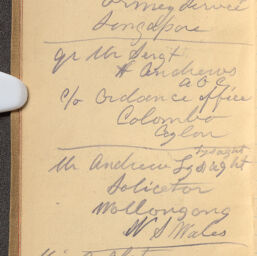 Army Service
Singapore
Qr Mr Sergt
H Andrews
A O C
C/o Ordance office
Colombo
Ceylon
Lysaght
Mr Andrew Lysaght
Solicetor
Wollongong
N S Wales